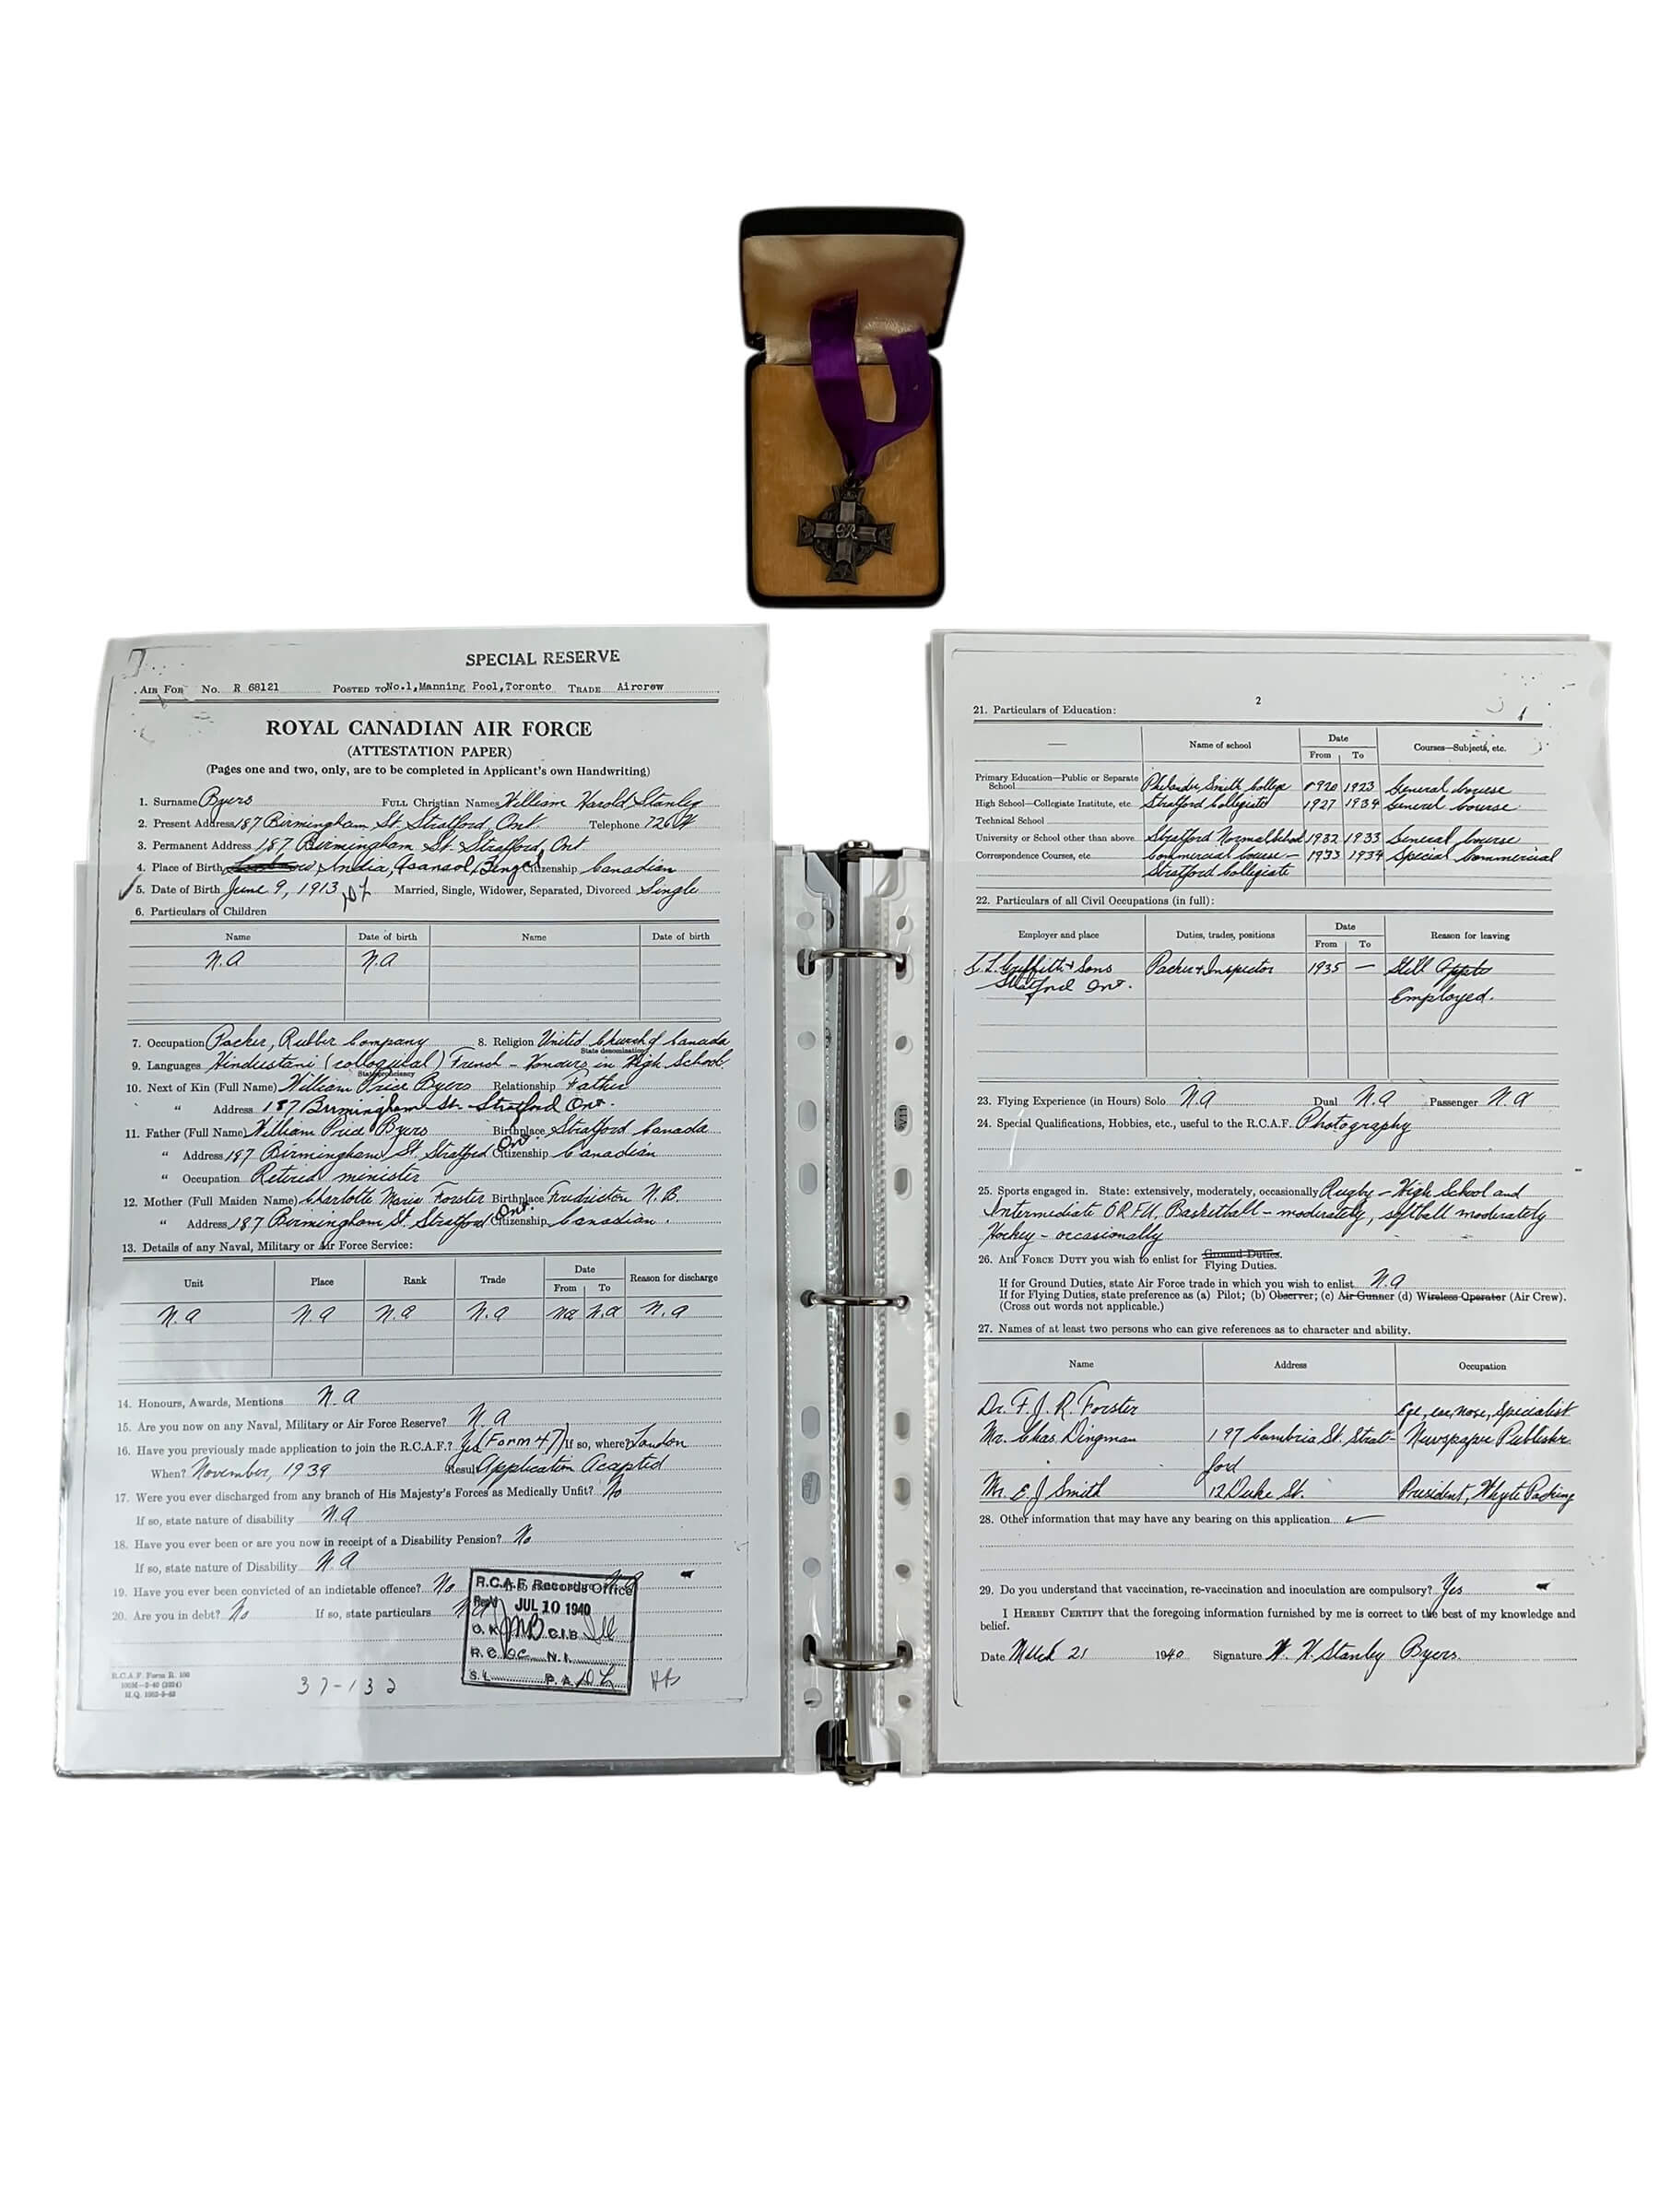 SPECIAL RESERVE
AIR FOR No. R 68121 POSTED TO No.1, Manning Pool, Toronto TRADE Aircrew
ROYAL CANADIAN AIR FORCE
(ATTESTATION PAPER)
(Pages one and two, only, are to be completed in Applicant's own Handwriting)
1. Surname Byers FULL Christian Names William Harold Stanley
2. Present Address 187 Birmingham St. Stratford, Ont. Telephone 726W
3. Permanent Address 187 Birmingham St. Stratford, Ont
4. Place of Birth India, Asansol, Bengal Citizenship Canadian
5. Date of Birth June 9, 1913 Married, Single, Widower, Separated, Divorced Single
6. Particulars of Children
Name Date of birth Name Date of birth
N.A N.A
7. Occupation Packer, Rubber Company 8. Religion United Church of Canada
State denomination
9. Languages Hindustani (colloquial) French - Honours in High School
State proficiency
10. Next of Kin (Full Name) William Price Byers Relationship Father
" Address 187 Birmingham St. Stratford Ont.
11. Father (Full Name) William Price Byers Birthplace Stratford Canada
" Address 187 Birmingham St. Stratford Ont. Citizenship Canadian
" Occupation Retired minister
12. Mother (Full Maiden Name) Charlotte Maria Forster Birthplace N.B.
" Address 187 Birmingham St. Stratford Ont. Citizenship Canadian.
13. Details of any Naval, Military or Air Force Service:
Unit Place Rank Trade Date Reason for discharge
From To
N.A N.A N.A N.A N.A N.A N.A
14. Honours, Awards, Mentions N.A
15. Are you now on any Naval, Military or Air Force Reserve? N.A
16. Have you previously made application to join the R.C.A.F.? Yes (Form 47) If so, where? London
When? November, 1939 Result Application Accepted
17. Were you ever discharged from any branch of His Majesty's Forces as Medically Unfit? No
If so, state nature of disability N.A
18. Have you ever been or are you now in receipt of a Disability Pension? No
If so, state nature of Disability N.A
19. Have you ever been convicted of an indictable offence? No
20. Are you in debt? No If so, state particulars N.A
R.C.A.F. Records Office
Rec'd JUL 10 1940
O.K. JMB C.I.B.
R.C. N.I.
S.L. P.A.
R.C.A.F. Form R. 100
37-132
2
21. Particulars of Education:
Name of school Date Courses—Subjects, etc.
From To
Primary Education—Public or Separate School Philander Smith College 1920 1923 General Course
High School—Collegiate Institute, etc. Stratford Collegiate 1927 1934 General Course
Technical School
University or School other than above Stratford Normal School 1932 1933 General Course
Correspondence Courses, etc Commercial Course - 1933 1934 Special Commercial
Stratford Collegiate
22. Particulars of all Civil Occupations (in full):
Employer and place Duties, trades, positions Date Reason for leaving
From To
Griffith & Sons Packer & Inspector 1935 — Still
Stratford Ont. Employed.
23. Flying Experience (in Hours) Solo N.A Dual N.A Passenger N.A
24. Special Qualifications, Hobbies, etc., useful to the R.C.A.F. Photography
25. Sports engaged in. State: extensively, moderately, occasionally Rugby - High School and
Intermediate ORFU, Basketball - moderately, softball moderately
Hockey - occasionally
26. AIR FORCE DUTY you wish to enlist for Ground Duties.
Flying Duties.
If for Ground Duties, state Air Force trade in which you wish to enlist N.A
If for Flying Duties, state preference as (a) Pilot; (b) Observer; (c) Air Gunner (d) Wireless Operator (Air Crew).
(Cross out words not applicable.)
27. Names of at least two persons who can give references as to character and ability.
Name Address Occupation
Dr. F. J. R. Forster Eye, ear, nose, Specialist
Mr. Chas. Dingman 197 Cambria St. Strat- Newspaper Publisher
ford
Mr. E. J Smith 12 Duke St. President, Whyte Packing
28. Other information that may have any bearing on this application
29. Do you understand that vaccination, re-vaccination and inoculation are compulsory? Yes
I HEREBY CERTIFY that the foregoing information furnished by me is correct to the best of my knowledge and
belief.
Date March 21 1940 Signature W. H. Stanley Byers